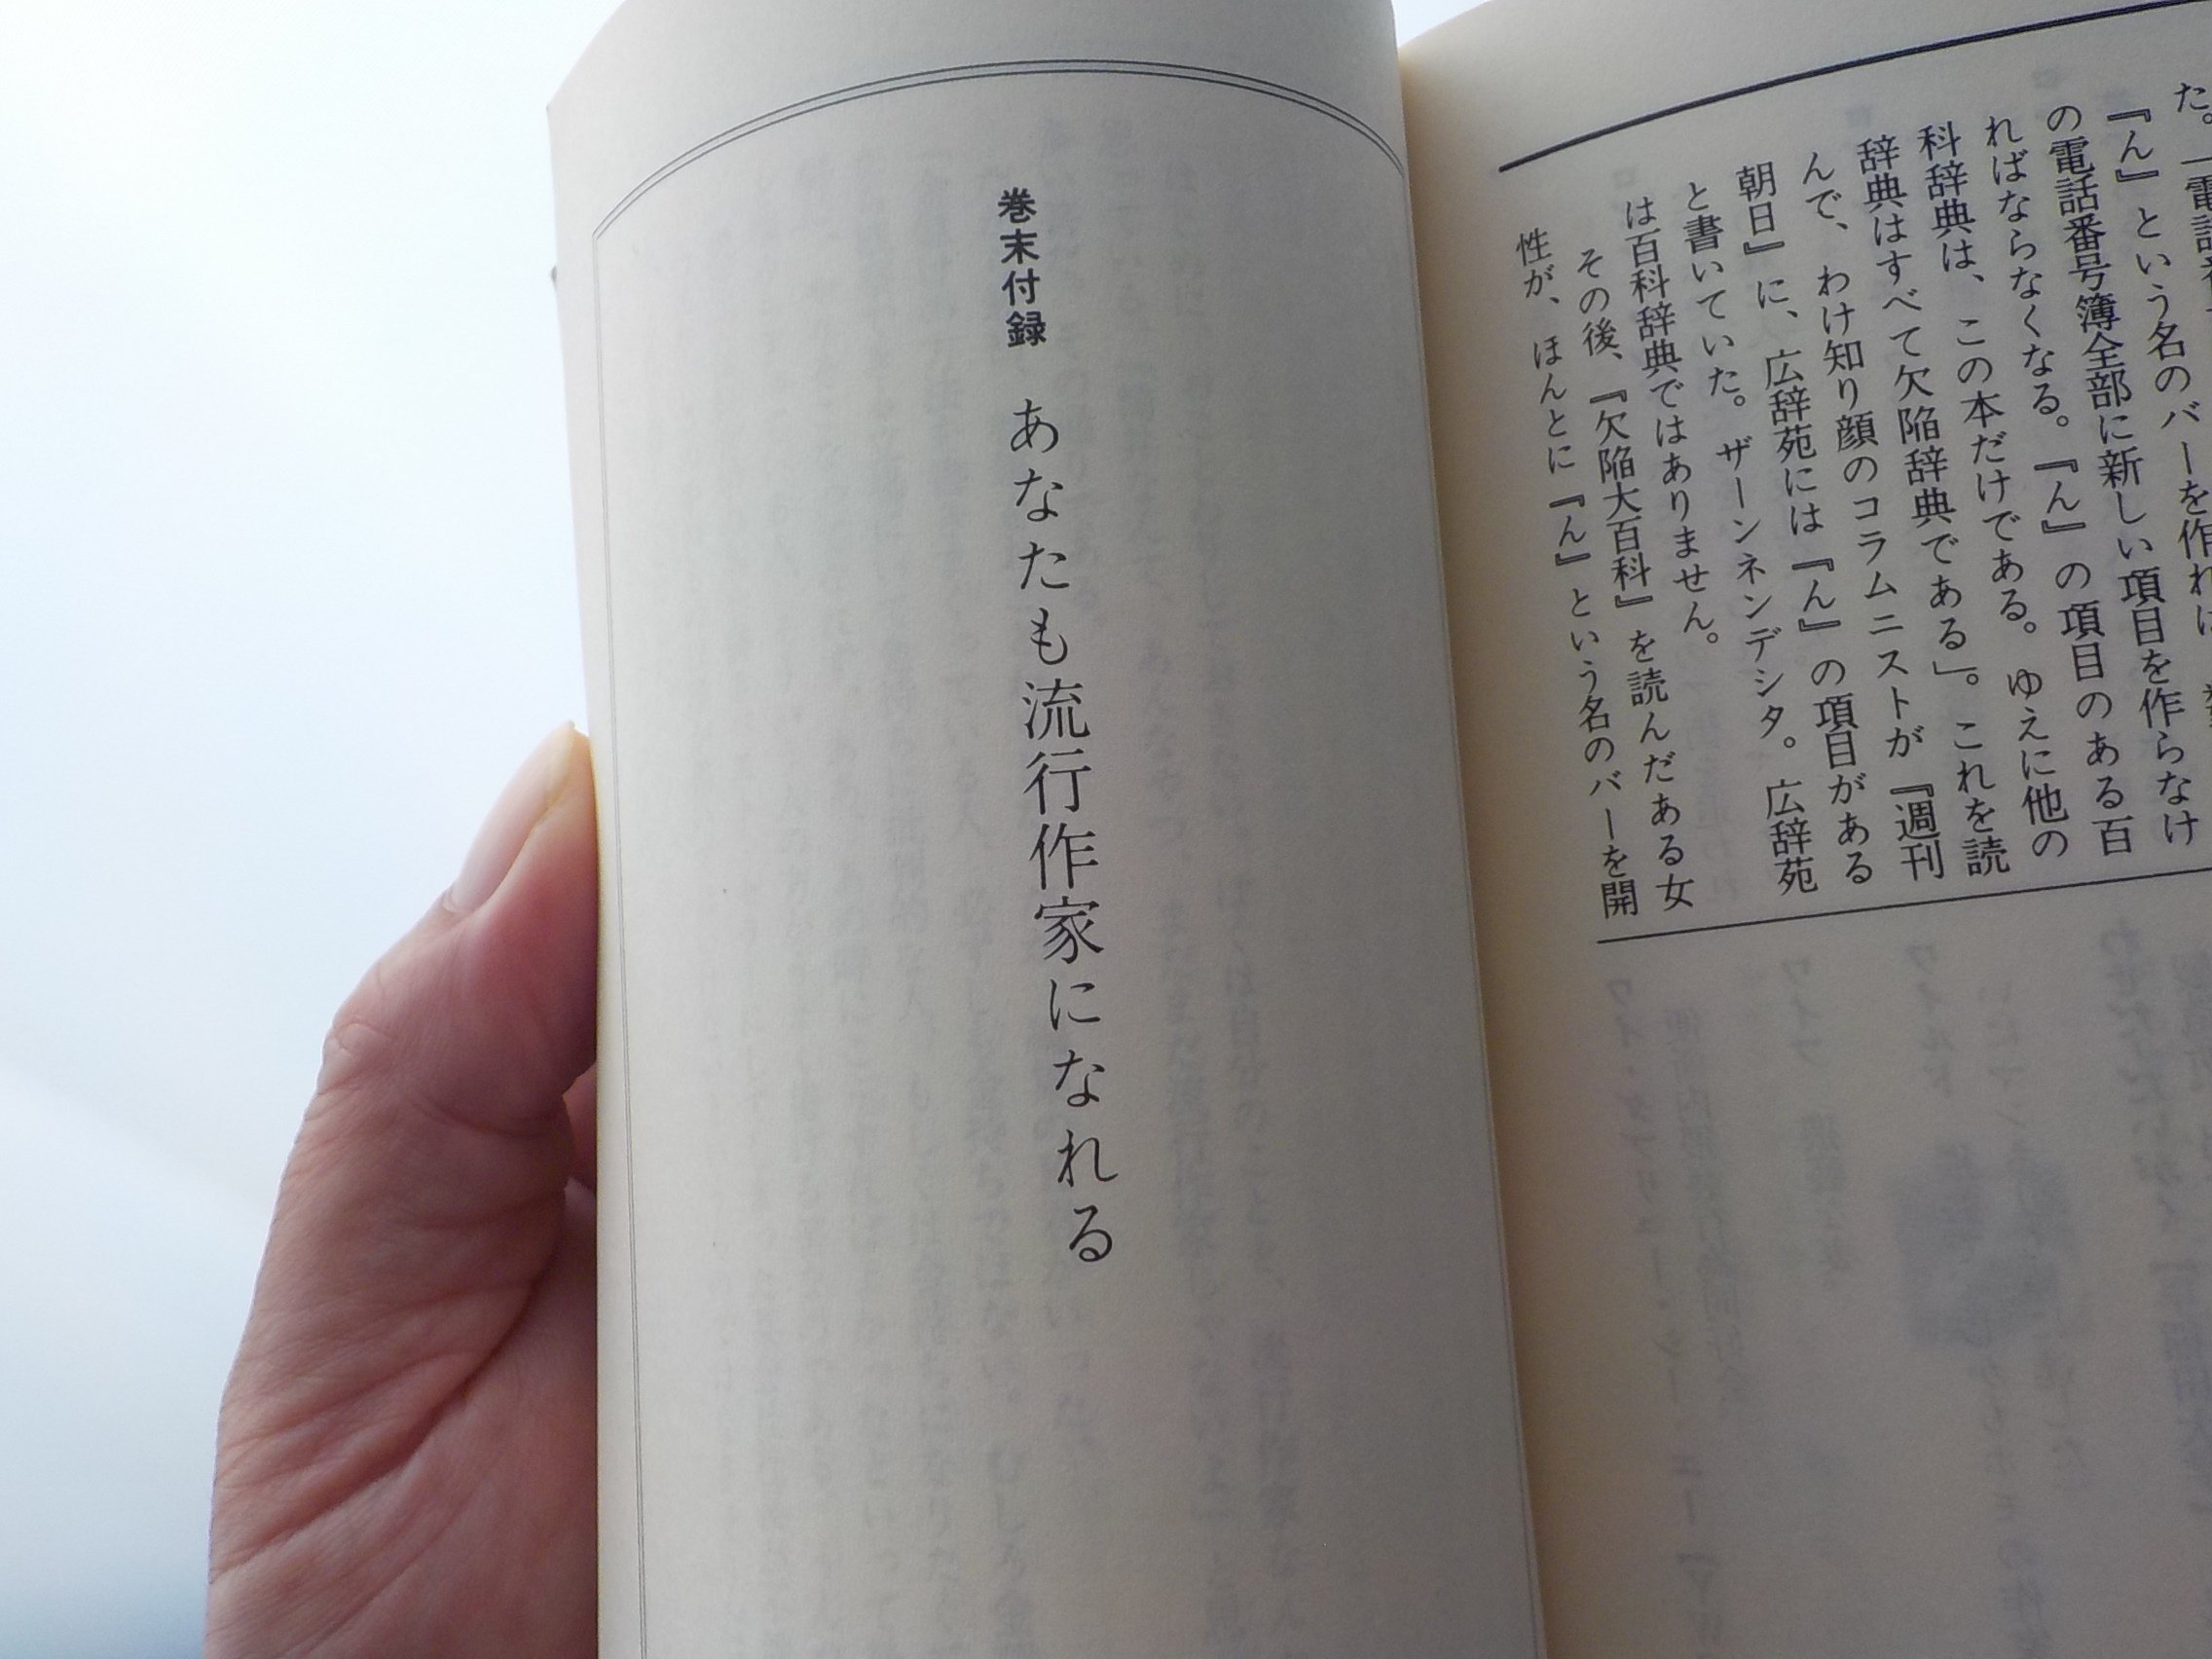 『ん』という名のバーを作れば
の電話番号簿全部に新しい項目を作らなけ
ればならなくなる。『ん』の項目のある百
科辞典は、この本だけである。ゆえに他の
辞典はすべて欠陥辞典である」。これを読
んで、わけ知り顔のコラムニストが『週刊
朝日』に、広辞苑には『ん』の項目がある
と書いていた。ザーンネンデシタ。広辞苑
は百科辞典ではありません。
その後、『欠陥大百科』を読んだある女
性が、ほんとに『ん』という名のバーを開
巻末付録 あなたも流行作家になれる